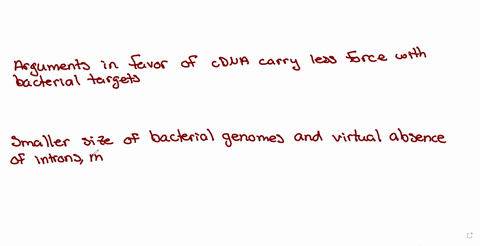 Arguments in favor of cDNA carry less force with
bacterial targets
Smaller size of bacterial genomes and virtual absence
of introns, m